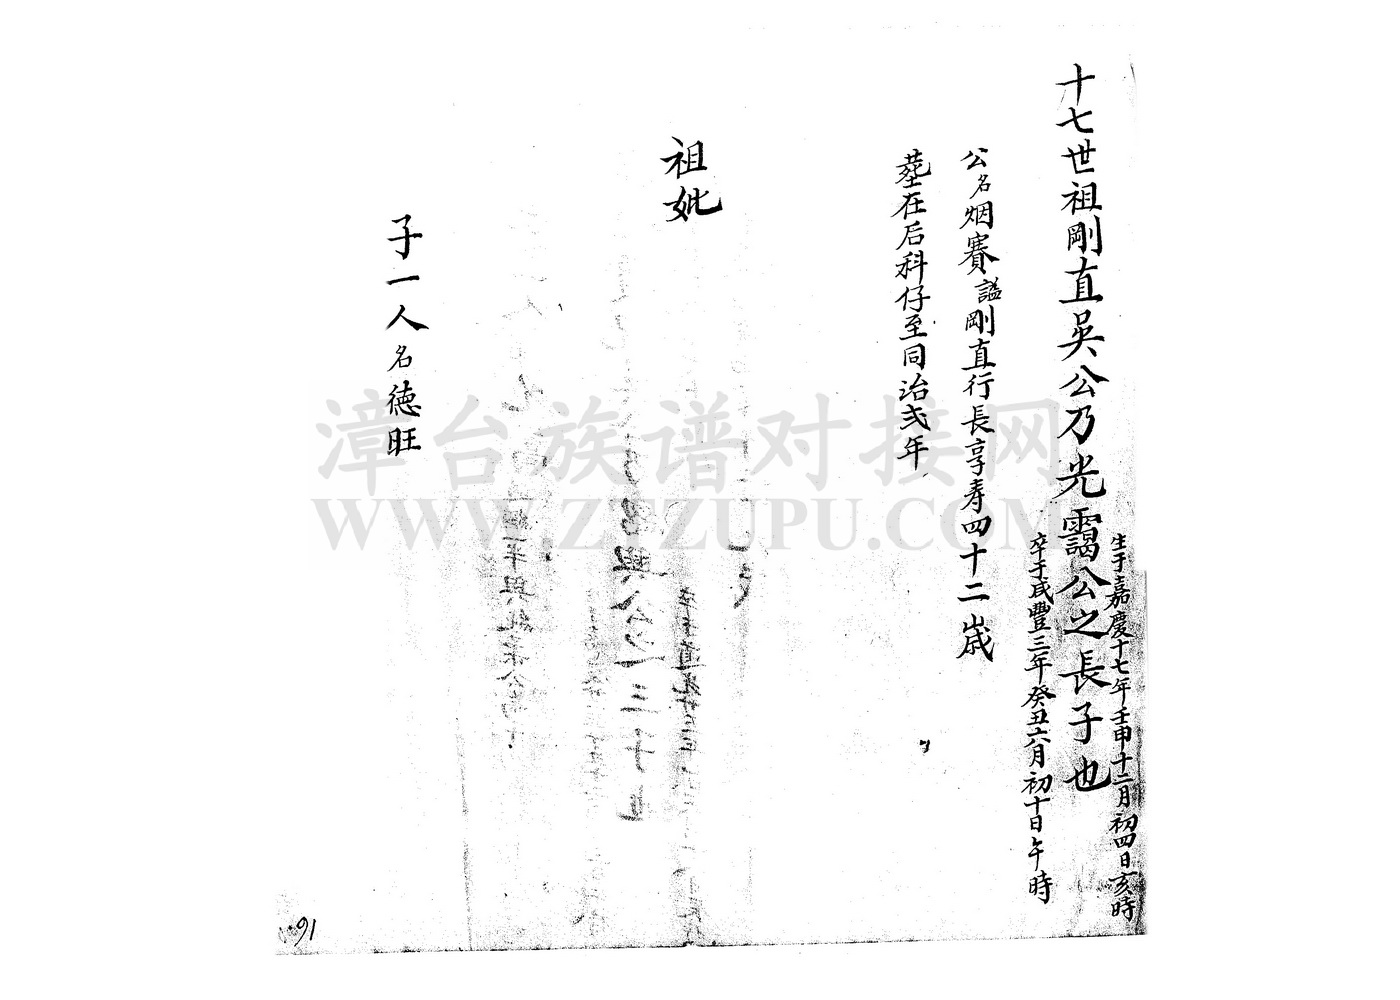 生于嘉慶十七年壬申十二月初四日亥時
十七世祖剛直吳公乃光靄公之長子也
卒于咸豐三年癸丑六月初十日午時
公名烟賽謚剛直行長享寿四十二歲
塟在后科仔至同治弍年
祖妣
子一人名德旺
漳台族谱对接网
WWW.ZTZUPU.COM
91